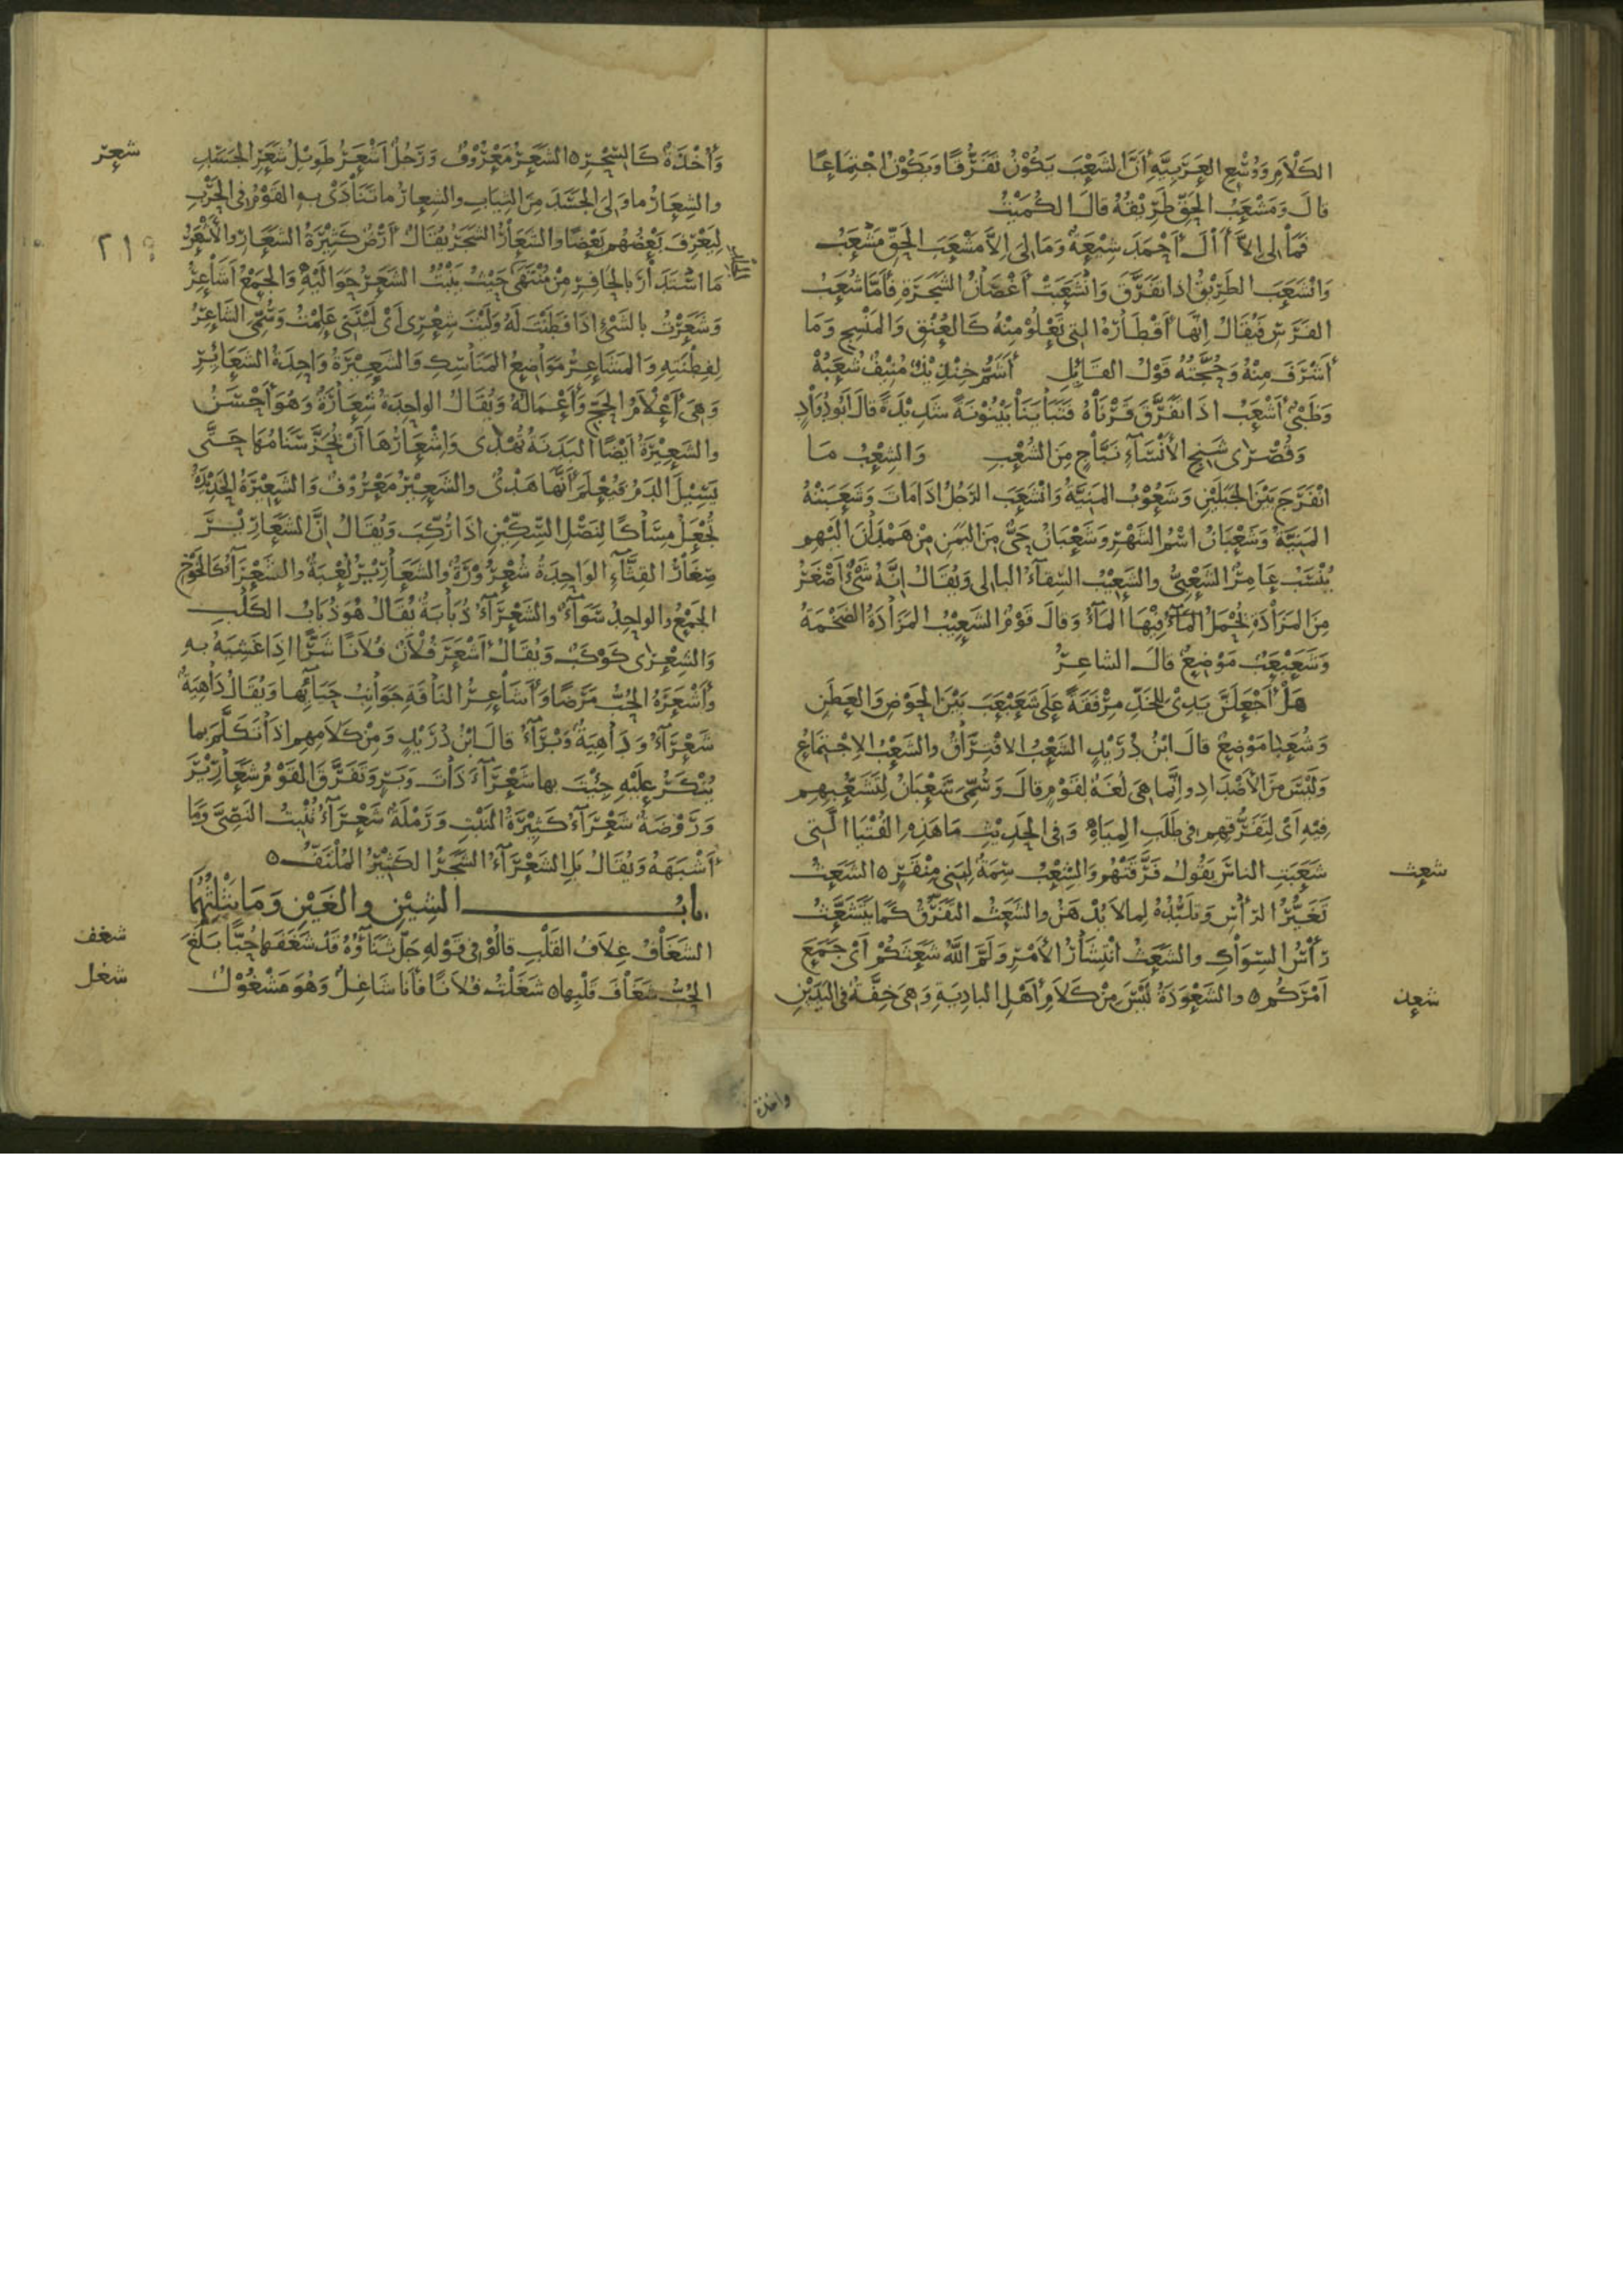 الكَلَامِ وَوُسْعِ العَرَبِيَّةِ أَنَّ الشَعْبَ يَكُوْنُ تَفَرُّقًا وَيَكُوْنُ اجْتِمَاعًا
قالَ وَمَشْعَبُ الحَقِّ طَرِيْقُهُ قالَ الكُمَيْتُ
فَمَا لِى إِلاَّ أَلَ أَحْمَدَ شِيْعَةٌ وَمَا لِىَ إِلاَّ مَشْعَبَ الحَقِّ مَشْعَبُ
وَانْشَعَبَ الطَرِيْقُ اذا تَفَرَّقَ وَانْشَعَبَتْ أَغْصَانُ الشَجَرَةِ فأَمَّا شُعَبُ
الفَرَسِ فَيُقَالُ إِنَّها أَقْطَارُهُ التِى تَعْلُوْ مِنْهُ كَالعُنُقِ وَالمَنْسِجِ وَمَا
أَشْرَفَ مِنْهُ وَحُجَّتُهُ قَوْلُ القَائِلِ أَشَمُّ خِنْذِيْذٌ مُنِيْفٌ شُعَبُهْ
وَظَبْىٌ أَشْعَبُ اذَا تَفَرَّقَ قَرْنَاهُ فَتَبَايَنَا بَيْنُوْنَةً شَدِيْدَةً قالَ أَبُو دُوَادٍ
وَقُصْرَى شَنِجِ الأَنْسَآءِ نَبَّاحٍ مِنَ الشُعْبِ وَالشِعْبُ مَا
انْفَرَجَ بَيْنَ الجَبَلَيْنِ وَشَعُوْبُ المَنِيَّةُ وَانْشَعَبَ الرَجُلُ اذَا مَاتَ وَشَعَبَتْهُ
المَنِيَّةُ وَشَعْبَانُ اسْمُ الشَهْرِ وَشَعْبَانُ حَىٌّ مِنَ اليَمَنِ مِنْ هَمْدَانَ اليْهِم
يُنْسَبُ عَامِرُ الشَعْبِىُّ والشَعِيْبُ السِقآءُ البالِى وَيُقَالُ إِنَّهُ شَىْءٌ أَصْغَرُ
مِنَ المَزَادَةِ يُحْمَلُ المآءُ فِيْهَا المَآءُ وَقالَ قَوْمٌ الشَعِيْبُ المَزَادَةُ الضَخْمَةُ
وَشَعَبْعَبُ مَوْضِعٌ قالَ الشاعِرُ
هَلْ أَجْعَلَنَّ يَدِىْ لِلْخَدِّ مِرْفَقَةً عَلَى شَعَبْعَبَ بَيْنَ الحَوْضِ وَالعَطَنِ
وَشُعَبَا مَوْضِعٌ قالَ ابْنُ دُرَيْدٍ الشَعْبُ الافْتِرَاقُ والشَعْبُ الاِجْتِمَاعُ
وَلَيْسَ مِنَ الأَضْدَادِ وإِنَّما هِىَ لُغَةٌ لِقَوْمٍ قالَ وَسُمِّىَ شَعْبَانُ لِتَشَعُّبِهِم
فِيْهِ أَىْ لِتَفَرُّقِهِم فِى طَلَبِ المِيَاهِ وَفِى الحَدِيْثِ مَا هَذِهِ الفُتْيَا الَّتِى
شَعَبَتِ الناسَ يَقُولُ فَرَّقَتْهُم وَالشِعْبُ سِمَةٌ لِبَنِى مِنْقَرٍ ٥ الشَعَثُ
شعث
تَغَيُّرُ الرَأْسِ وَتَلَبُّدُهُ لِما لا يُدْهَنُ والشَعَثُ التَفَرُّقُ كَما يَتَشَعَّثُ
رَأْسُ السِوَاكِ والشَعَثُ انْتِشَارُ الأَمْرِ وَلَمَّ اللهُ شَعَثَكُمْ أَىْ جَمَعَ
أَمْرَكُم ٥ والشَعْوَذَةُ لَيْسَ مِنْ كَلَامِ أَهْلِ البادِيَةِ وَهِىَ خِفَّةٌ فِى اليَدَيْنِ
شعذ
وأخذة
وَأُخْذَةٌ كَالسِّحْرِ ٥ الشَعَرُ مَعْرُوْفٌ وَرَجُلٌ أَشْعَرُ طَوِيْلُ شَعَرِ الجَسَدِ
شعر
والشِعَارُ ما وَلِىَ الجَسَدَ مِنَ الثِيَابِ والشِعارُ ما تَنَادَىْ بِهِ القَوْمُ فِى الحَرْبِ
لِيَعْرِفَ بَعْضُهُم بَعْضًا والشَعَارُ الشَجَرُ يُقَالُ أَرْضٌ كَثِيْرَةُ الشَعَارِ والأَشْعَرُ
٢١٩
مَا اسْتَدَارَ بالحَافِرِ مِنْ مُنْتَهَى حَيْثُ يَنْبُتُ الشَعَرُ حَوَالَيْهِ وَالجَمْعُ أَشَاعِرُ
وَشَعَرْتُ بالشَىْءِ اذَا فَطَنْتَ لَهُ وَلَيْتَ شِعْرِى أَىْ لَيْتَنِى عَلِمْتُ وَسُمِّىَ الشَاعِرُ
لِفِطْنَتِهِ وَالمَشَاعِرُ مَوَاضِعُ المَنَاسِكِ وَالشَعِيْرَةُ وَاحِدَةُ الشَعَائِرِ
وَهِىَ أَعْلَامُ الحَجِّ وَأَعْمَالُهُ وَيُقَالُ الوَاحِدَةُ شِعَارَةٌ وَهُوَ أَحْسَنُ
والشَعِيْرَةُ أَيْضًا البَدَنَةُ تُهْدَى وَإِشْعَارُهَا أَنْ يُحَزَّ سَنَامُهَا حَتَّى
يَسِيْلَ الدَمُ فَيُعْلَمَ أَنَّها هَدْىٌ والشَعِيْرُ مَعْرُوْفٌ وَالشَعِيْرَةُ الحَدِيْدَةُ
تُجْعَلُ مِسَاكًا لِنَصْلِ السِّكِّيْنِ اذَا رُكِّبَ وَيُقَالُ إِنَّ الشَعَارِيْرَ
صِغَارُ القِثَّآءِ الوَاحِدَةُ شُعْرُوْرَةٌ والشَعَارِيْرُ لُعْبَةٌ والشَعْرَآءُ كَالخَوْخِ
الجَمْعُ والوَاحِدُ سَوَآءٌ والشَعْرَآءُ ذُبَابَةٌ يُقَالُ هُوَ ذُبَابُ الكَلْبِ
وَالشِعْرَى كَوْكَبٌ وَيُقَالُ أَشْعَرَ فُلَانٌ فُلَانًا شَرًّا اذَا غَشِيَهُ بِهِ
وَأَشْعَرَهُ الحُبُّ مَرَضًا وَأَشَاعِرُ النَاقَةِ جَوَانِبُ حَيَآئِها وَيُقَالُ دَاهِيَةٌ
شَعْرَآءُ وَدَاهِيَةٌ وَبْرَآءُ قالَ ابْنُ دُرَيْدٍ وَمِنْ كَلَامِهِم اذَا تَكَلَّمَ بما
يُنْكَرُ عَلَيْهِ جِئْتَ بها شَعْرَآءَ ذَاتَ وَبَرٍ وَتَفَرَّقَ القَوْمُ شَعَارِيْرَ
وَرَوْضَةٌ شَعْرَآءُ كَثِيْرَةُ النَبْتِ وَرَمْلَةٌ شَعْرَآءُ تُنْبِتُ النَصِىَّ وَمَا
أَشْبَهَهُ وَيُقَالُ بَلِ الشَعْرَآءُ الشَجَرُ الكَثِيْرُ المُلْتَفُّ ٥
بابُ الشِيْنِ والغَيْنِ وَمَا يَثْلِثُهُمَا
الشَغَافُ غِلَافُ القَلْبِ قالُوْا فِى قَوْلِهِ جَلَّ ثَنَآؤُهُ قَدْ شَغَفَهَا حُبًّا بَلَغَ
شغف
الحُبُّ شَغَافَ قَلْبِها ٥ شَغَلْتُ فُلَانًا فَأَنَا شَاغِلٌ وَهُوَ مَشْغُوْلٌ
شغل